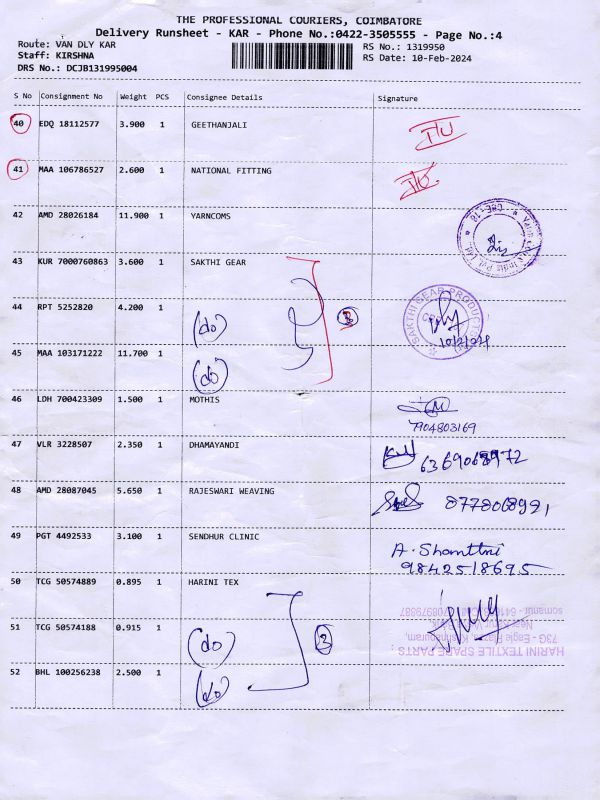 THE PROFESSIONAL COURIERS, COIMBATORE
Delivery Runsheet - KAR - Phone No.:0422-3505555 - Page No.:4
Route: VAN DLY KAR RS No.: 1319950
Staff: KIRSHNA RS Date: 10-Feb-2024
DRS No.: DCJB131995004
S No Consignment No Weight PCS Consignee Details Signature
40 EDQ 18112577 3.900 1 GEETHANJALI
41 MAA 106786527 2.600 1 NATIONAL FITTING
42 AMD 28026184 11.900 1 YARNCOMS
43 KUR 7000760863 3.600 1 SAKTHI GEAR
44 RPT 5252820 4.200 1 (do) 3 SAKTHI GEAR PRODUCTS
45 MAA 103171222 11.700 1 (do)
46 LDH 700423309 1.500 1 MOTHIS
7904803169
47 VLR 3228507 2.350 1 DHAMAYANDI
48 AMD 28087045 5.650 1 RAJESWARI WEAVING
49 PGT 4492533 3.100 1 SENDHUR CLINIC
9842518695
50 TCG 50574889 0.895 1 HARINI TEX
51 TCG 50574188 0.915 1 (do) 3
73G - Eagle
HARINI TEXTILE SPARE PARTS
52 BHL 100256238 2.500 1 (do)